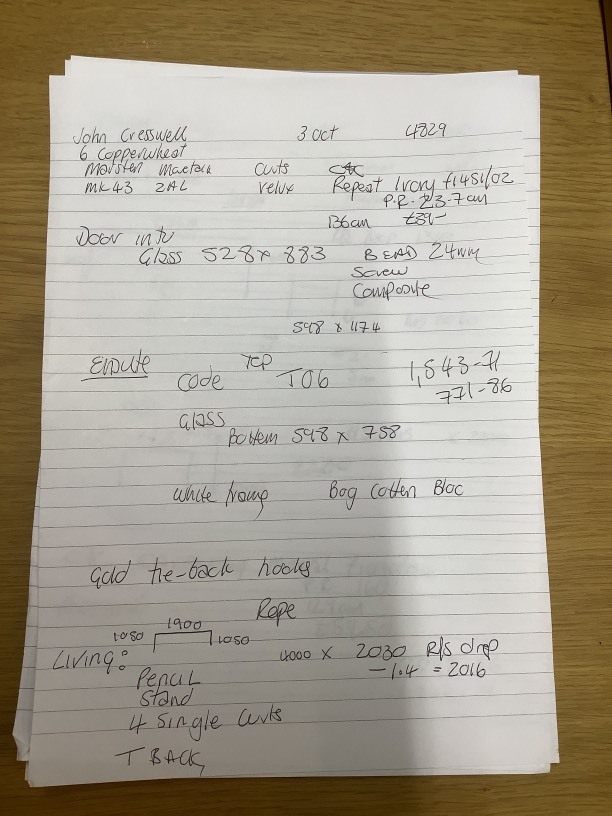 John Cresswell 3 oct 4829
6 Copperwheat
Marsten Curts
MK43 2AL velux Repeat Ivory f1451/02
P.R. 23-7cm
136cm
Door into
Glass 528 x 883 BEAD 24mm
Screw
Composite
598 x 1174
Ensuite TOP
Code T06 1,543-71
771-86
Glass
Bottem 598 x 758
white Bag Cotten Bloc
Gold tie-back hooks
Rope
1900
1050 1050
Living: 4000 x 2030 R/s drop
-1.4 = 2016
Pencil
Stand
4 Single Curts
T BACK